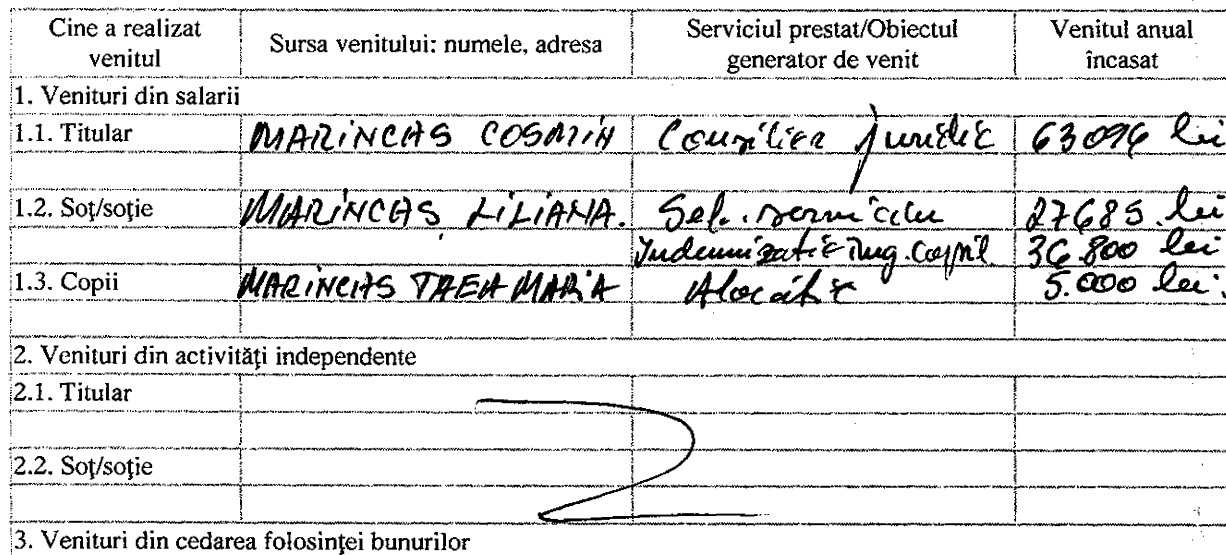 Cine a realizat venitul | Sursa venitului: numele, adresa | Serviciul prestat/Obiectul generator de venit | Venitul anual încasat
1. Venituri din salarii
1.1. Titular | MARINCAS COSMIN | Consilier juridic | 63096 lei
1.2. Soţ/soţie | MARINCAS LILIANA. | Sef. serviciu | 27685. lei
Indemnizatie ing. copil. | 36.800 lei
1.3. Copii | MARINCAS MARIA | Alocatie | 5.000 lei.
2. Venituri din activităţi independente
2.1. Titular
2.2. Soţ/soţie
3. Venituri din cedarea folosinţei bunurilor